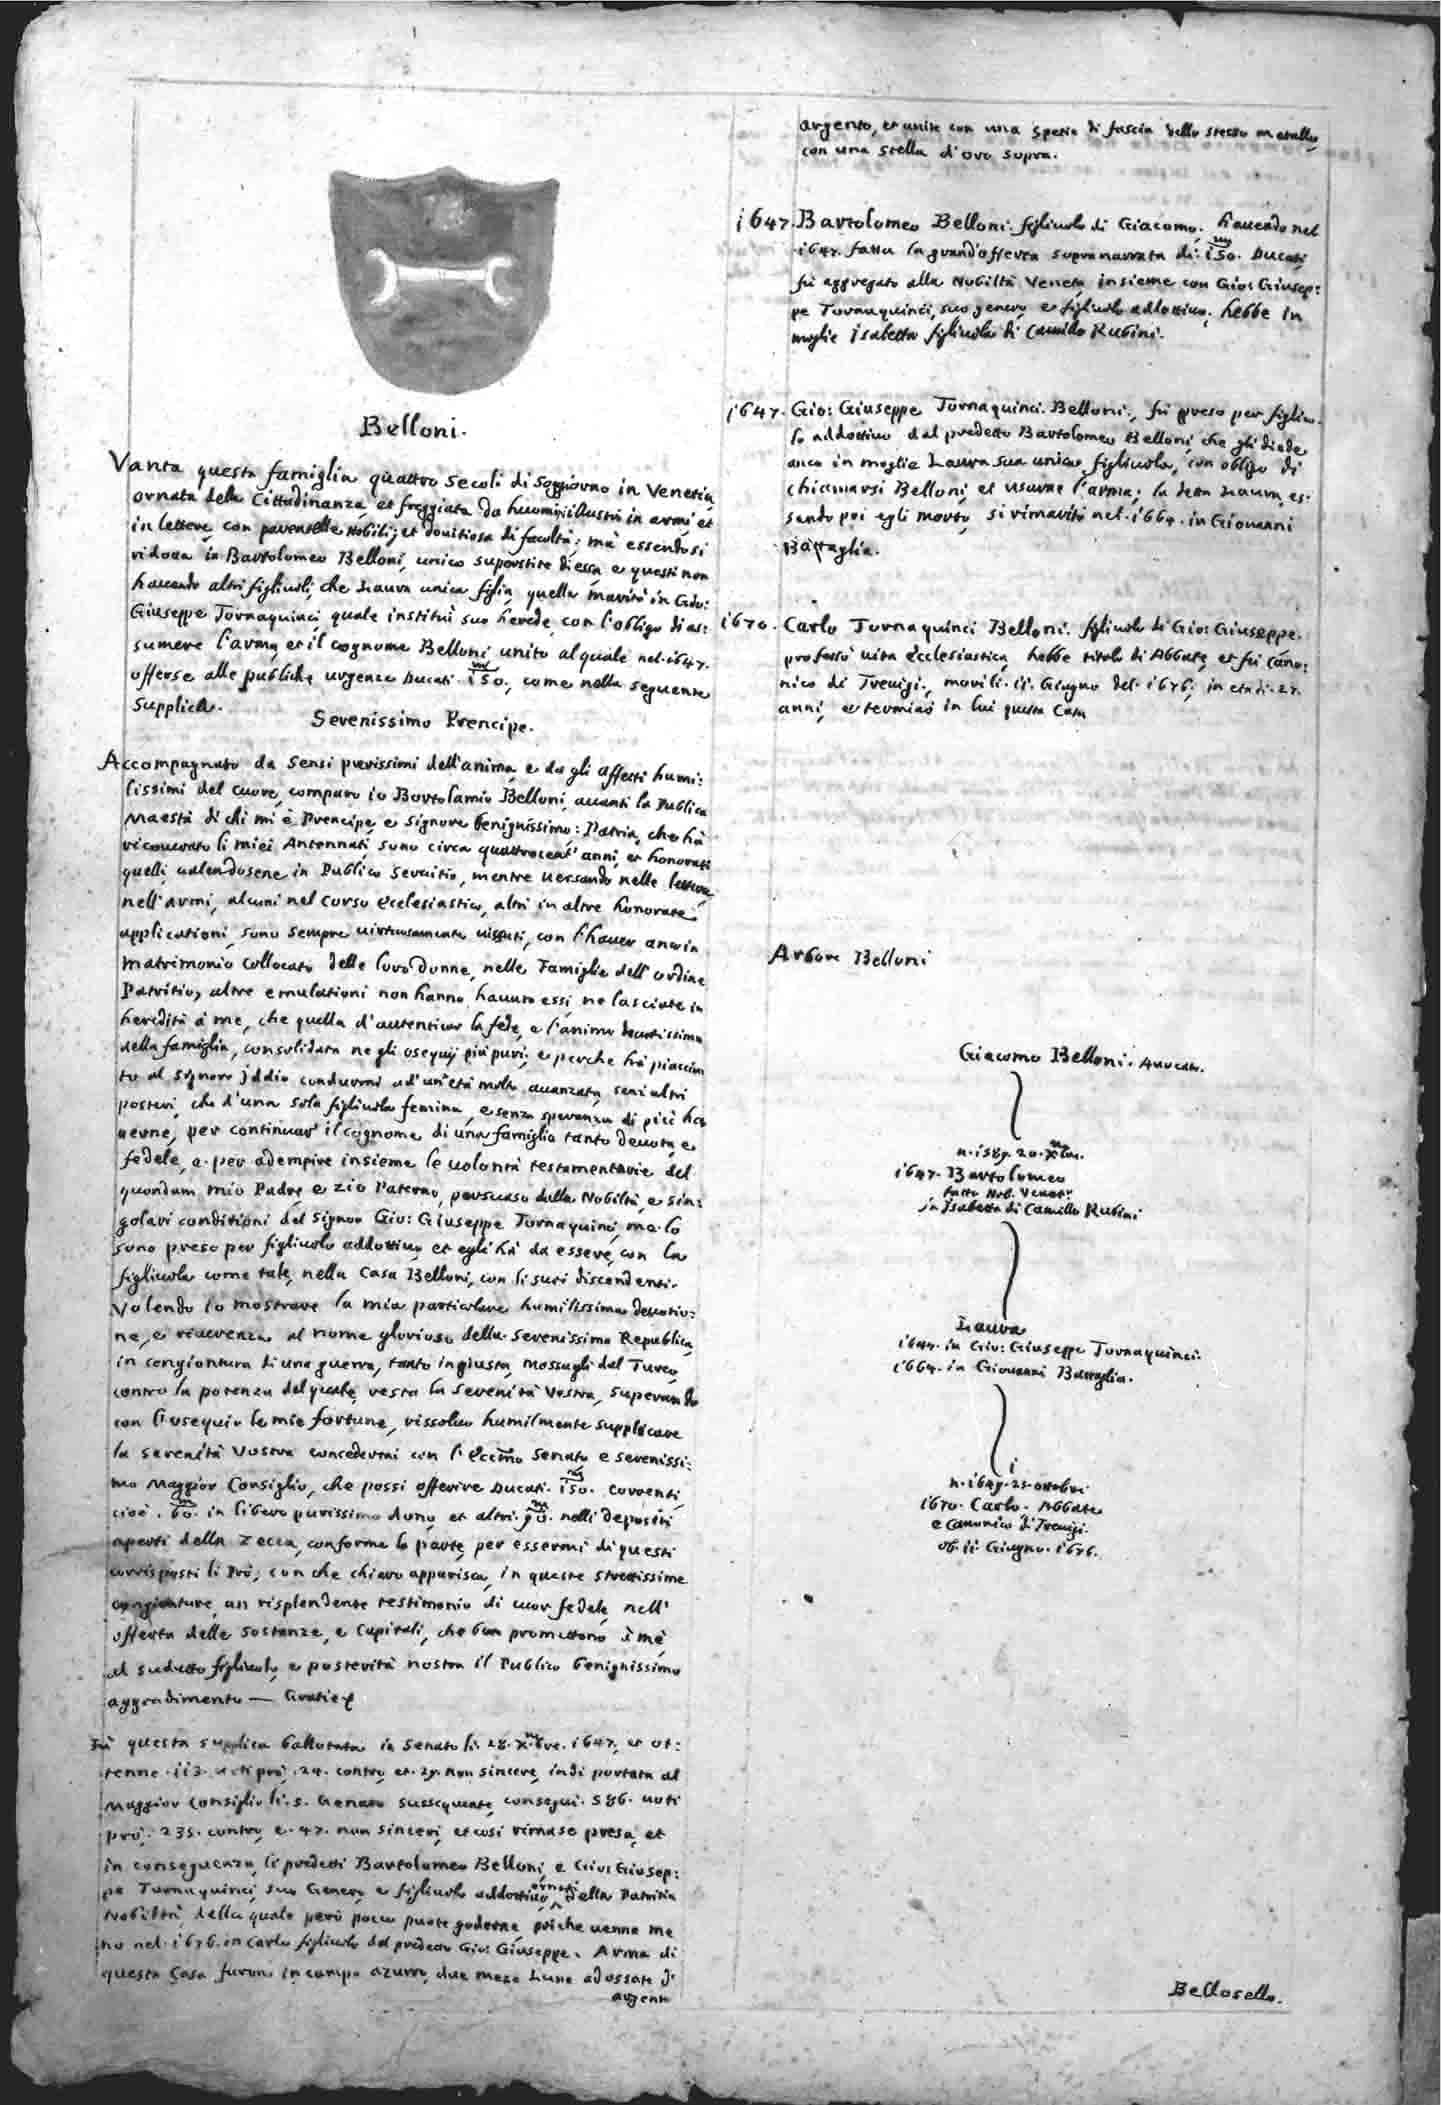 Belloni.
Vanta questa famiglia quattro secoli di soggiorno in Venetia
ornata della Cittadinanza, et freggiata da huomini illustri in armi, et
in lettere, con parentelle Nobili; et douitiosa di facoltà; mà essendosi
ridotta in Bartolomeo Belloni, unico superstite di essa, e questi non
hauendo altri figliuoli, che Laura unica figlia, quella maritò in Gio:
Giuseppe Tornaquinci, quale instituì suo herede, con l'obligo di as:
sumere l'arma, et il cognome Belloni, unito al quale nel. 1647.
offerse alle publiche urgenze Ducati. 150.m, come nella seguente
supplica.
Serenissimo Prencipe.
Accompagnato da sensi purissimi dell'anima, e da gli affetti humi:
lissimi del cuore, comparo io Bortolamio Belloni, auanti la Publica
Maestà di chi mi è Prencipe, e Signore benignissimo: Patria, che hà
ricourato li miei Antennati, sono circa quattrocent' anni, et honorati
quelli, ualendosene in Publico Seruitio, mentre uersando nelle lettere,
nell'armi, alcuni nel corso Ecclesiastico, altri in altre honorate
applicationi, sono sempre uirtuosamente uissuti, con l'hauer anco in
matrimonio collocato delle loro donne, nelle Famiglie dell'ordine
Patritio, altre emulationi non hanno hauuto essi, ne lasciate in
heredità à me, che quella d'autenticar la fede, e l'animo deuotissimo
della famiglia, consolidata ne gli ossequij più puri; e perche hà piacciu
to al Signore jddio condurmi ad'un'età molto auanzata, senz'altri
posteri, che d'una sola figliuola femina, e senza speranza di più ha
uerne, per continuar il cognome di una famiglia tanto deuota, e
fedele, e per adempire insieme le uolontà testamentarie del
quondam mio Padre e zio Paterno, persuaso dalla Nobiltà, e sin:
golari conditioni del Signor Gio: Giuseppe Tornaquinci, me lo
sono preso per figliuolo addottiuo, et egli hà da essere, con la
figliuola come tale, nella Casa Belloni, con li suoi discendenti.
Volendo io mostrare la mia particolare humilissima deuotio:
ne, e riuerenza al nome glorioso della Serenissima Republica,
in congiontura di una guerra, tanto ingiusta, mossagli dal Turco,
contro la potenza del quale, resta la Serenità Vostra, superando
con l'ossequio le mie fortune, rissoluo humilmente supplicare
la Serenità Vostra concedermi con l'Eccmo Senato e Serenissi:
mo Maggior Consiglio, che possi offerire Ducati. 150.m correnti,
cioè. 60.m in libero purissimo dono, et altri. 90.m nelli depositi
aperti della Zecca, conforme la parte, per essermi di questi
corrisposti li Prò; con che chiaro apparisca, in queste strettissime
congionture, un risplendente testimonio di cuor fedele, nell'
offerta delle sostanze, e Capitali, che ben promettono à me,
al sudetto figliuolo, e posterità nostra il Publico benignissimo
aggradimento — Gratie
Fù questa supplica ballottata in Senato li. 28. Xmbre. 1647. et ot:
tenne. 113. uoti prò, 24. contro, et. 29. non sincere, indi portata al
Maggior Consiglio li. 5. Genaro susseguente, conseguì. 586. uoti
prò. 235. contro, e. 47. non sinceri, et così rimase presa, et
in conseguenza, li predetti Bartolomeo Belloni, e Gio: Giusep:
pe Tornaquinci, suo Genero, e figliuolo addottiuo, ornati della Patritia
Nobiltà, della quale però poco puote goderne, poiche uenne me
no nel. 1676. in Carlo figliuolo del predetto Gio: Giuseppe. Arma di
questa Casa furono in campo azurro, due meze Lune adossate d'
argento
argento, et unite con una spetie di fascia dello stesso metallo,
con una stella d'oro sopra.
1647. Bartolomeo Belloni. figliuolo di Giacomo. hauendo nel
1647. fatta la grand'offerta sopranarrata di. 150.m Ducati,
fù aggregato alla Nobiltà Veneta, insieme con Gio: Giusep:
pe Tornaquinci, suo genero, e figliuolo addottiuo; hebbe in
moglie Isabetta figliuola di Camillo Rubini.
1647. Gio: Giuseppe Tornaquinci. Belloni., fù preso per figliuo.
lo addottiuo dal predetto Bartolomeo Belloni, che gli diede
anco in moglie Laura sua unica figliuola, con obligo di
chiamarsi Belloni, et usarne l'arma; la detta Laura, es:
sendo poi egli morto, si rimaritò nel. 1664. in Giouanni
Battaglia.
1670. Carlo Tornaquinci Belloni. figliuolo di Gio: Giuseppe.
professò uita Ecclesiastica, hebbe titolo di Abbate, et fù Cano:
nico di Treuigi., morì li. 11. Giugno del. 1676; in età di. 27.
anni, e terminò in lui questa Casa
Arbore Belloni
Giacomo Belloni. Auocato.
n. 1589. 20. Xmbre.
1647. Bartolomeo
fatto Nob. Veneto
in Isabetta di Camillo Rubini
Laura
1644. in Gio: Giuseppe Tornaquinci.
1664. in Giouanni Battaglia.
n. 1649. 25. ottobre
1670. Carlo. Abbate
e Canonico di Treuigi.
ob. 11 Giugno. 1676.
Bellosello.